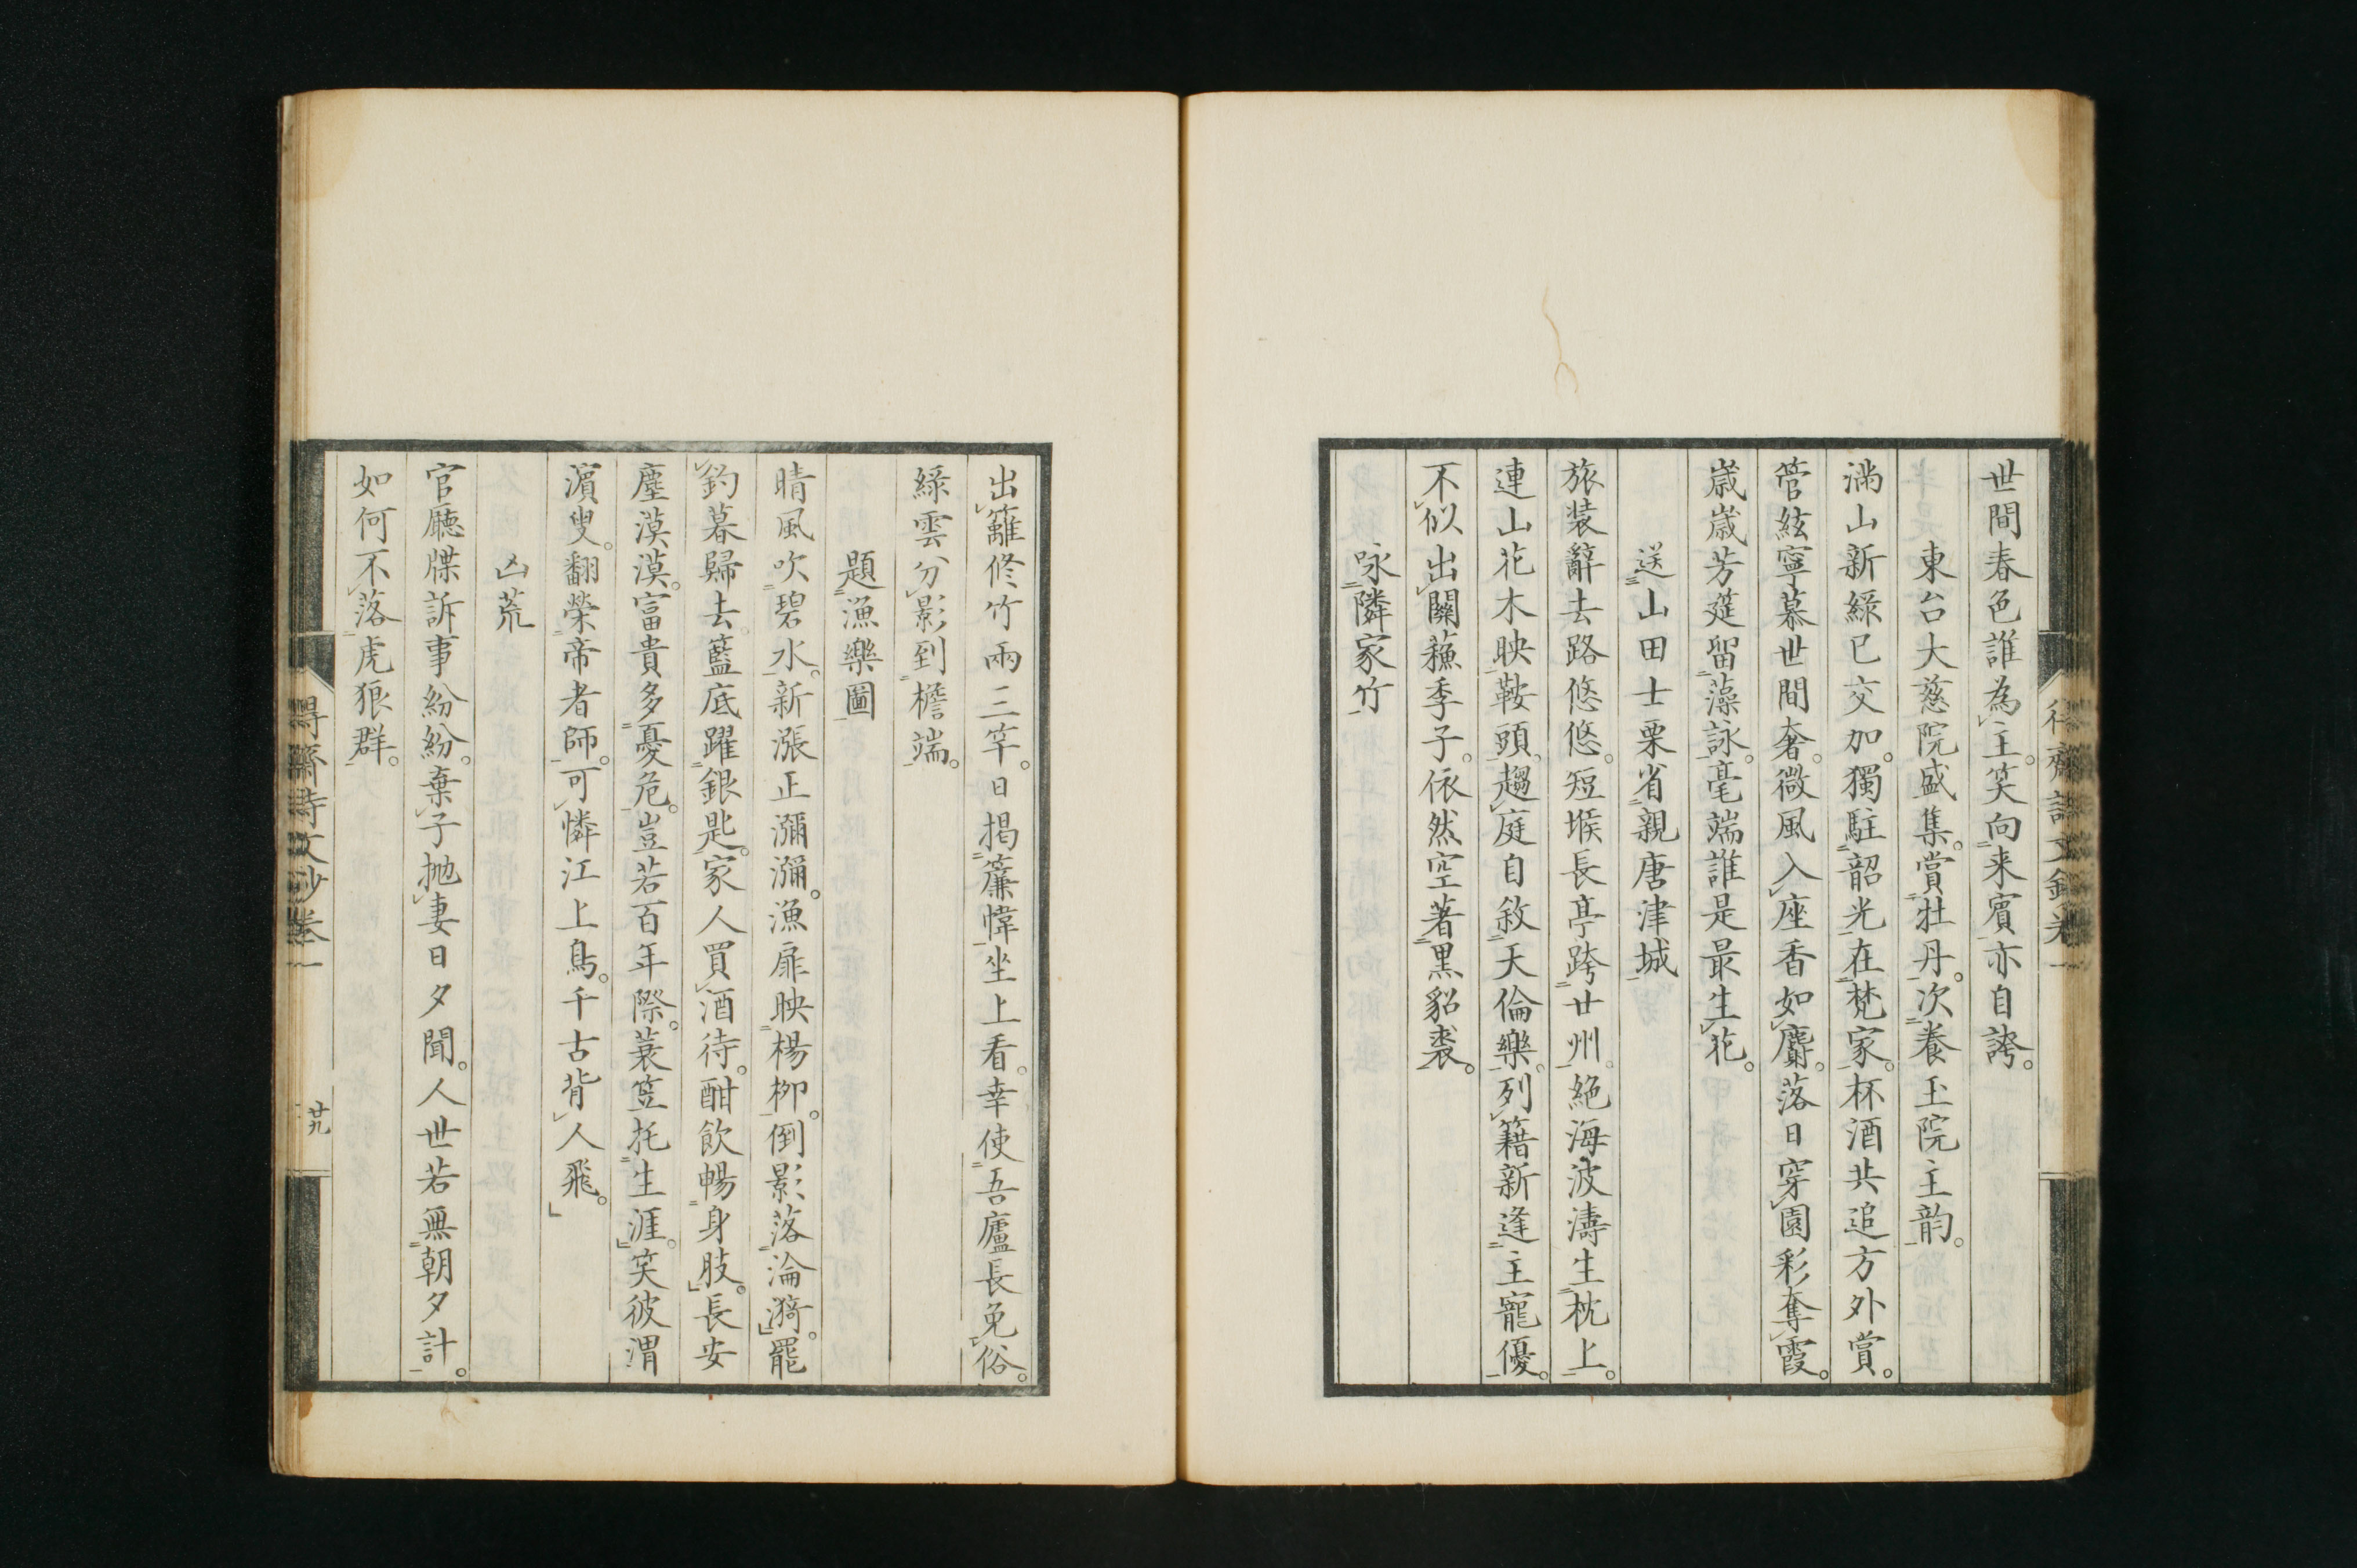 世間春色誰為主。笑向来賓亦自誇。
東台大慈院盛集。賞牡丹。次養玉院主韵。
満山新緑已交加。獨駐韶光在梵家。杯酒共追方外賞。
管絃寧慕世間奢。微風入座香如麝。落日穿園彩奪霞。
歳歳芳筵留藻詠。毫端誰是最生花。
送山田士栗省親唐津城
旅装辭去路悠悠。短堠長亭跨廿州。絶海波濤生枕上。
連山花木映鞍頭。趨庭自敘天倫樂。列籍新逢主寵優。
不似出關蘓季子。依然空著黒貂裘。
咏隣家竹
得齋詩文鈔卷一
出籬修竹兩三竿。日掲簾幃坐上看。幸使吾廬長免俗。
緑雲分影到檐端。
題漁樂圖
晴風吹碧水。新漲正瀰瀰。漁扉映楊栁。倒影落淪漪。罷
釣暮歸去。籃底躍銀匙。家人買酒待。酣飲暢身肢。長安
塵漠漠。富貴多憂危。豈若百年際。蓑笠托生涯。笑彼渭
濱叟。翻榮帝者師。可憐江上鳥。千古背人飛。
凶荒
官廳牒訴事紛紛。棄子抛妻日夕聞。人世若無朝夕計。
如何不落虎狼群。
得齋詩文鈔卷一
廿九